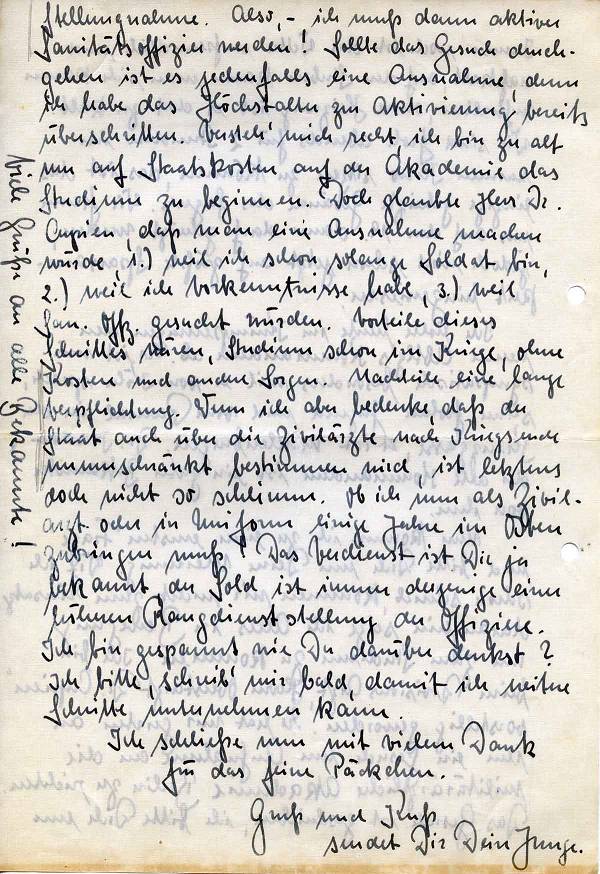 Stellungnahme. Also, - ich muß dann aktiver
Sanitätsoffizier werden! Sollte das Gesuch durch-
gehen ist es jedenfalls eine Ausnahme, denn
ich habe das Höchstalter zur Aktivierung bereits
überschritten. Versteh' mich recht, ich bin zu alt
um auf Staatskosten auf der Akademie das
Studium zu beginnen. Doch glaubte Herr Dr.
daß man eine Ausnahme machen
würde, 1.) weil ich schon solange Soldat bin,
2.) weil ich Vorkenntnisse habe, 3.) weil
San. Offz. gesucht würden. Vorteile dieses
Schrittes wären, Studium schon im Kriege, ohne
Kosten und andere Sorgen. Nachteile eine lange
Verpflichtung. Wenn ich aber bedenke, daß der
Staat auch über die Zivilärzte nach Kriegsende
unumschränkt bestimmen wird, ist letztens
doch nicht so schlimm. Ob ich nun als Zivil-
arzt oder in Uniform einige Jahre im Osten
zubringen muß! Das Verdienst ist Dir ja
bekannt, der Sold ist immer derjenige einer
höheren Rangdienststellung der Offiziere.
Ich bin gespannt wie Du darüber denkst?
Ich bitte, schreib' mir bald, damit ich weitere
Schritte unternehmen kann.
Ich schließe nun mit vielem Dank
für das feine Päckchen.
Gruß und Kuß
sendet Dir Dein Junge.
Viele Grüße an alle Bekannte!